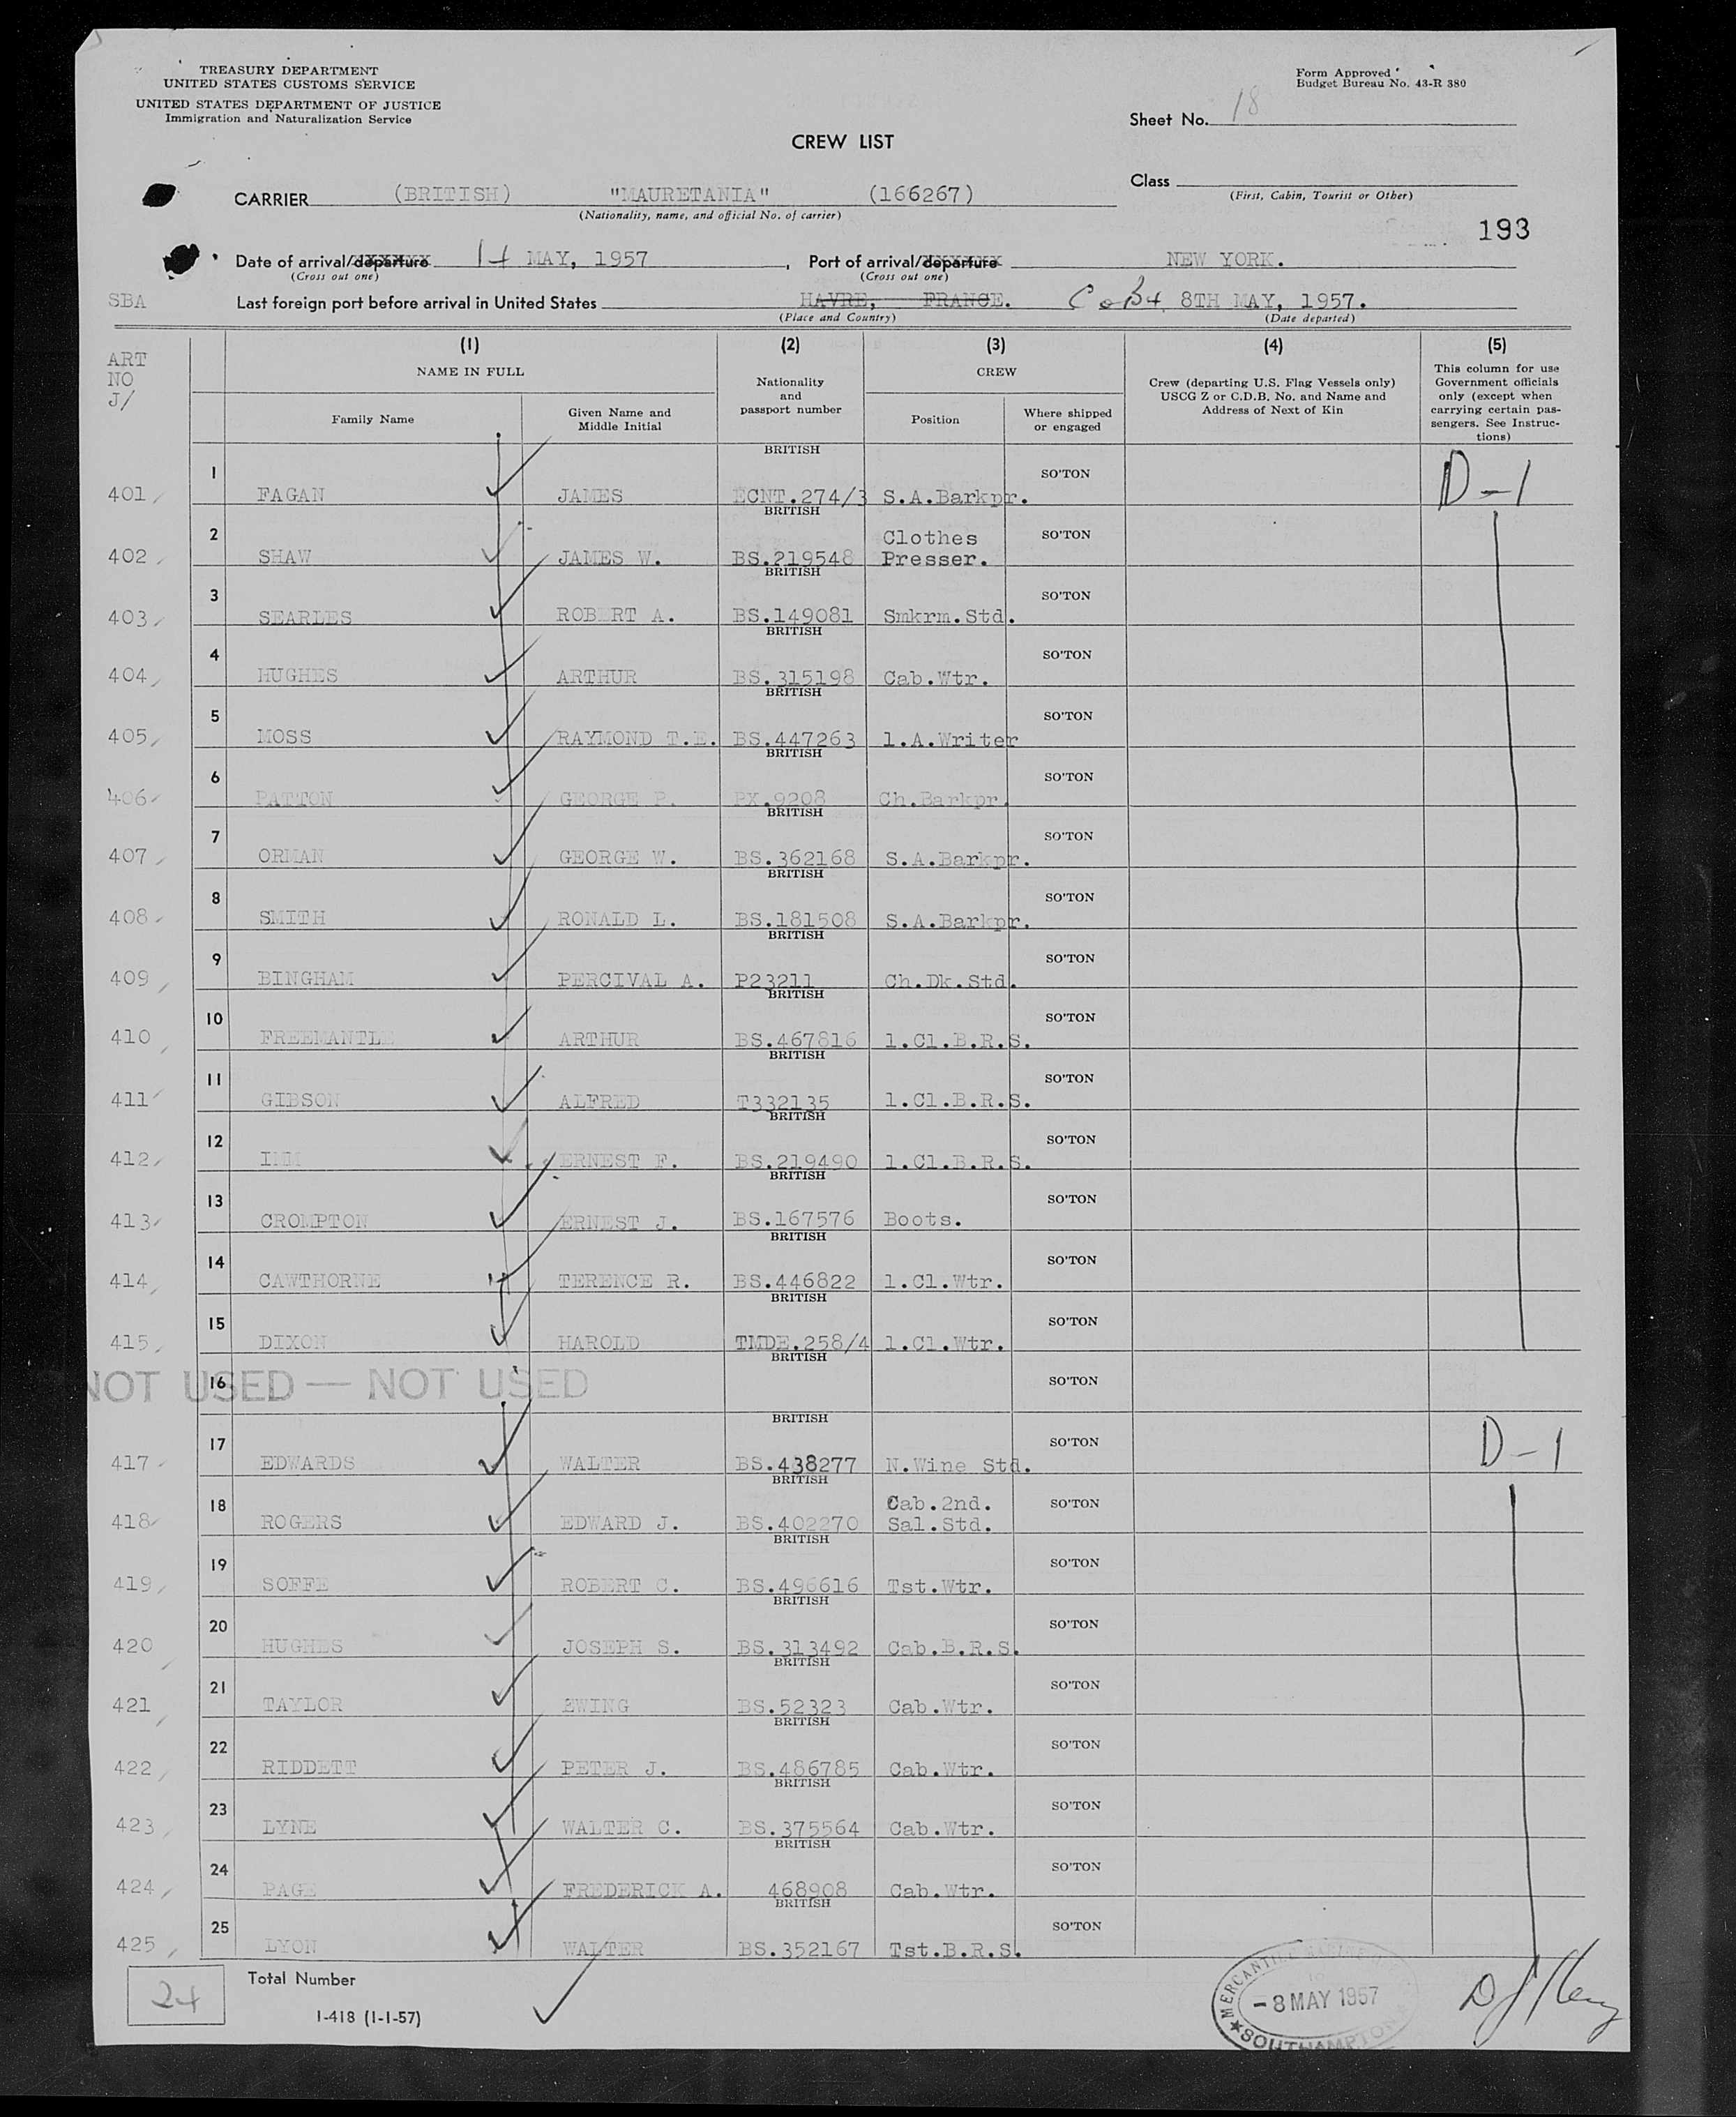 TREASURY DEPARTMENT
UNITED STATES CUSTOMS SERVICE
UNITED STATES DEPARTMENT OF JUSTICE
Immigration and Naturalization Service
Form Approved
Budget Bureau No. 43-R 380
Sheet No. 18
CREW LIST
Class
(First, Cabin, Tourist or Other)
CARRIER (BRITISH) "MAURETANIA" (166267)
(Nationality, name, and official No. of carrier)
193
Date of arrival/departure 14 MAY, 1957, Port of arrival/departure NEW YORK.
(Cross out one) (Cross out one)
SBA Last foreign port before arrival in United States HAVRE, FRANCE. 8TH MAY, 1957.
(Place and Country) (Date departed)
ART NO J/
(1) (2) (3) (4) (5)
NAME IN FULL
Family Name
Given Name and Middle Initial
Nationality and passport number
CREW
Position
Where shipped or engaged
Crew (departing U.S. Flag Vessels only)
USCG Z or C.D.B. No. and Name and
Address of Next of Kin
This column for use
Government officials
only (except when
carrying certain pas-
sengers. See Instruc-
tions)
401 1 FAGAN JAMES BRITISH ECNT.274/3 S.A.Barkpr. SO'TON D-1
402 2 SHAW JAMES W. BRITISH BS.219548 Clothes Presser. SO'TON
403 3 SEARLES ROBERT A. BRITISH BS.149081 Smkrm.Std. SO'TON
404 4 HUGHES ARTHUR BRITISH BS.315198 Cab.Wtr. SO'TON
405 5 MOSS RAYMOND T.E. BRITISH BS.447263 1.A.Writer SO'TON
406 6 PATTON GEORGE P. BRITISH PX.9208 Ch.Barkpr. SO'TON
407 7 ORMAN GEORGE W. BRITISH BS.362168 S.A.Barkpr. SO'TON
408 8 SMITH RONALD L. BRITISH BS.181508 S.A.Barkpr. SO'TON
409 9 BINGHAM PERCIVAL A. BRITISH P23211 Ch.Dk.Std. SO'TON
410 10 FREEMANTLE ARTHUR BRITISH BS.467816 1.Cl.B.R.S. SO'TON
411 11 GIBSON ALFRED BRITISH T332135 1.Cl.B.R.S. SO'TON
412 12 IMM ERNEST F. BRITISH BS.219490 1.Cl.B.R.S. SO'TON
413 13 CROMPTON ERNEST J. BRITISH BS.167576 Boots. SO'TON
414 14 CAWTHORNE TERENCE R. BRITISH BS.446822 1.Cl.Wtr. SO'TON
415 15 DIXON HAROLD BRITISH TMDE.258/4 1.Cl.Wtr. SO'TON
NOT USED — NOT USED 16 BRITISH SO'TON
417 17 EDWARDS WALTER BRITISH BS.438277 N.Wine Std. SO'TON D-1
418 18 ROGERS EDWARD J. BRITISH BS.402270 Cab.2nd. Sal.Std. SO'TON
419 19 SOFFE ROBERT C. BRITISH BS.496616 Tst.Wtr. SO'TON
420 20 HUGHES JOSEPH S. BRITISH BS.313492 Cab.B.R.S. SO'TON
421 21 TAYLOR EWING BRITISH BS.52323 Cab.Wtr. SO'TON
422 22 RIDDETT PETER J. BRITISH BS.486785 Cab.Wtr. SO'TON
423 23 LYNE WALTER C. BRITISH BS.375564 Cab.Wtr. SO'TON
424 24 PAGE FREDERICK A. BRITISH 468908 Cab.Wtr. SO'TON
425 25 LYON WALTER BRITISH BS.352167 Tst.B.R.S. SO'TON
24 Total Number
I-418 (1-1-57)
MERCANTILE
-8 MAY 1957
SOUTHAMPTON